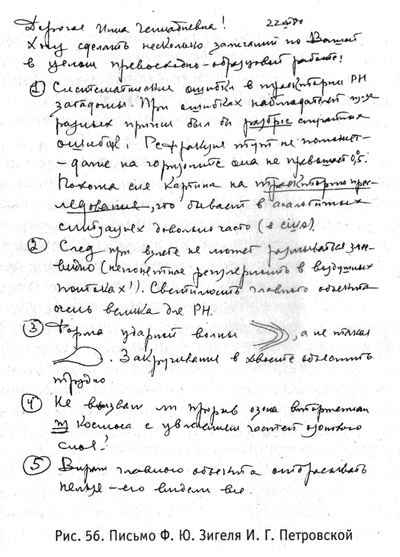 Дорогая Инна Геннадиевна! 22
Хочу сделать несколько замечаний по Вашей
в целом превосходно-образцовой работе:
① Систематические ошибки в траектории РН
загадочны. При ошибках наблюдателей
разных причин был бы разброс
ошибок! Рефракция тут не поможет-
- даже на горизонте она не превышает 0,5.
Похожа сия картина на траекторию прес-
ледования, что бывает в аналогичных
ситуациях довольно часто (в США).
② След при взлете не может
видно (непонятная регулярность в воздушных
потоках!). Светимость главного объекта
очень велика для РН.
③ Форма ударной волны , а не такая
. Закручивание в хвосте объяснить
трудно
④ Не вызван ли прорыв озона вторжением
из Космоса с увлечением частей озонового
слоя?
⑤ Вираж главного объекта отбрасывать
нельзя – его видели все.
Рис. 56. Письмо Ф. Ю. Зигеля И. Г. Петровской